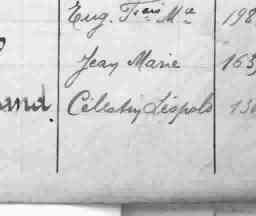 Eug. Fçois Mie 198
Jean Marie 163
and. Célestin Léopold 136